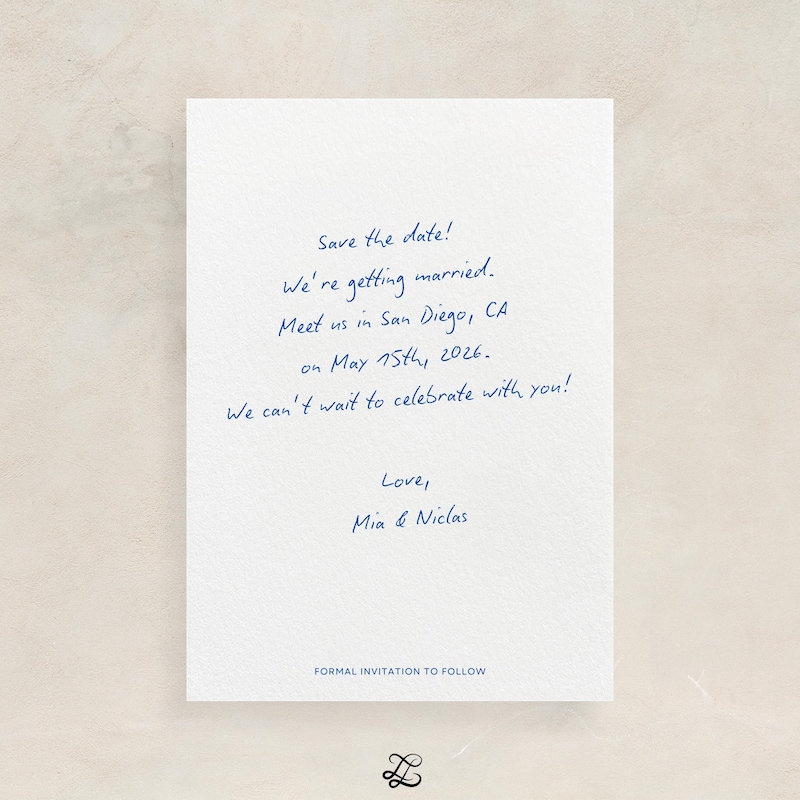 Save the date!
We're getting married.
Meet us in San Diego, CA
on May 15th, 2026.
We can't wait to celebrate with you!
Love,
Mia & Niclas
FORMAL INVITATION TO FOLLOW